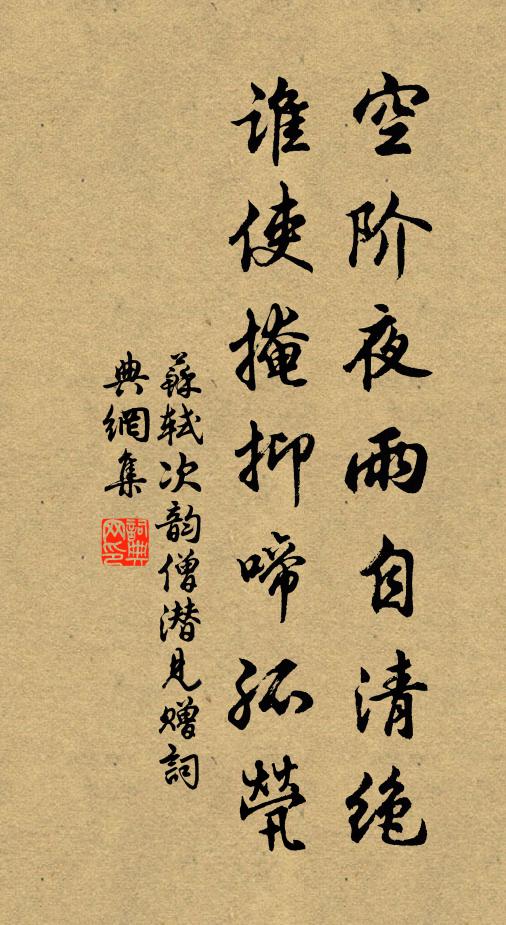 空阶夜雨自清绝
谁使掩抑啼孤茕
蘇轼次韵僧潜見赠詞
典網集
詞典
网印